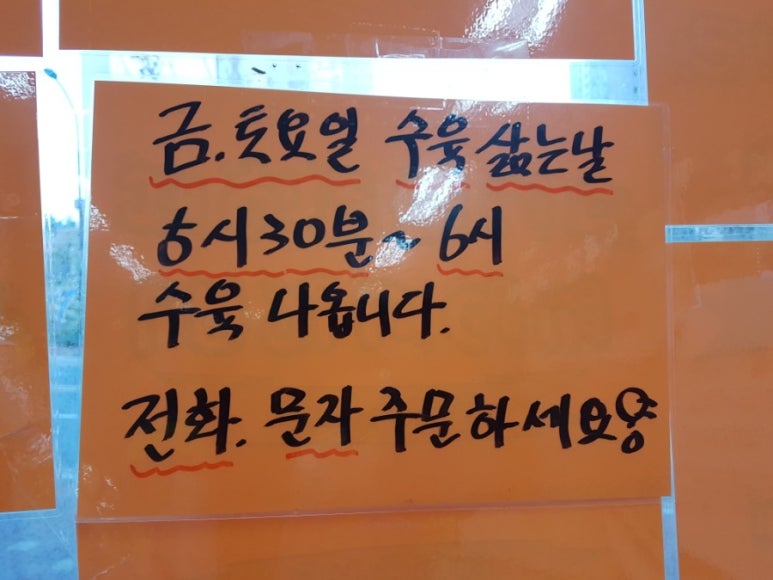 금.토요일 수육 삶는날
5시30분~6시
수육 나옵니다.
전화.문자 주문하세요용